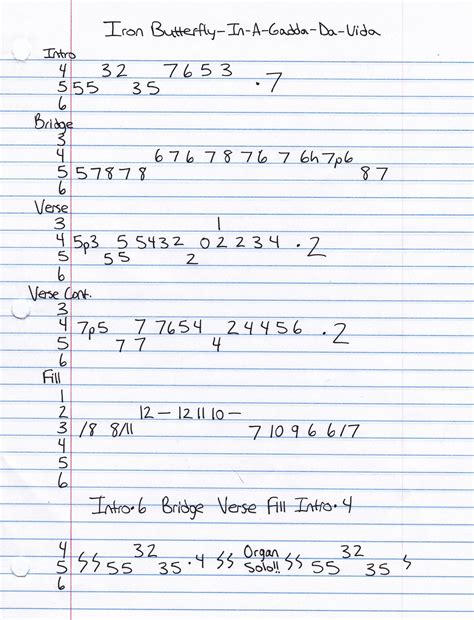 Iron Butterfly-In-A-Gadda-Da-Vida
Intro
4 32 7653
5 55 35 .7
6
Bridge
3
4 676 7876 7 6h7p6
5 57878 87
6
Verse
3 1
4 5p3 5 5432 02234 .2
5 55 2
6
Verse Cont.
3
4 7p5 7 7654 24456 .2
5 77 4
6
Fill
1
2 12- 121110-
3 /8 8/11 7 10 9 6 6/7
4
5
6
Intro.6 Bridge Verse Fill Intro.4
4 32 Organ 32
5 55 35 .4 Solo!! 55 35
6